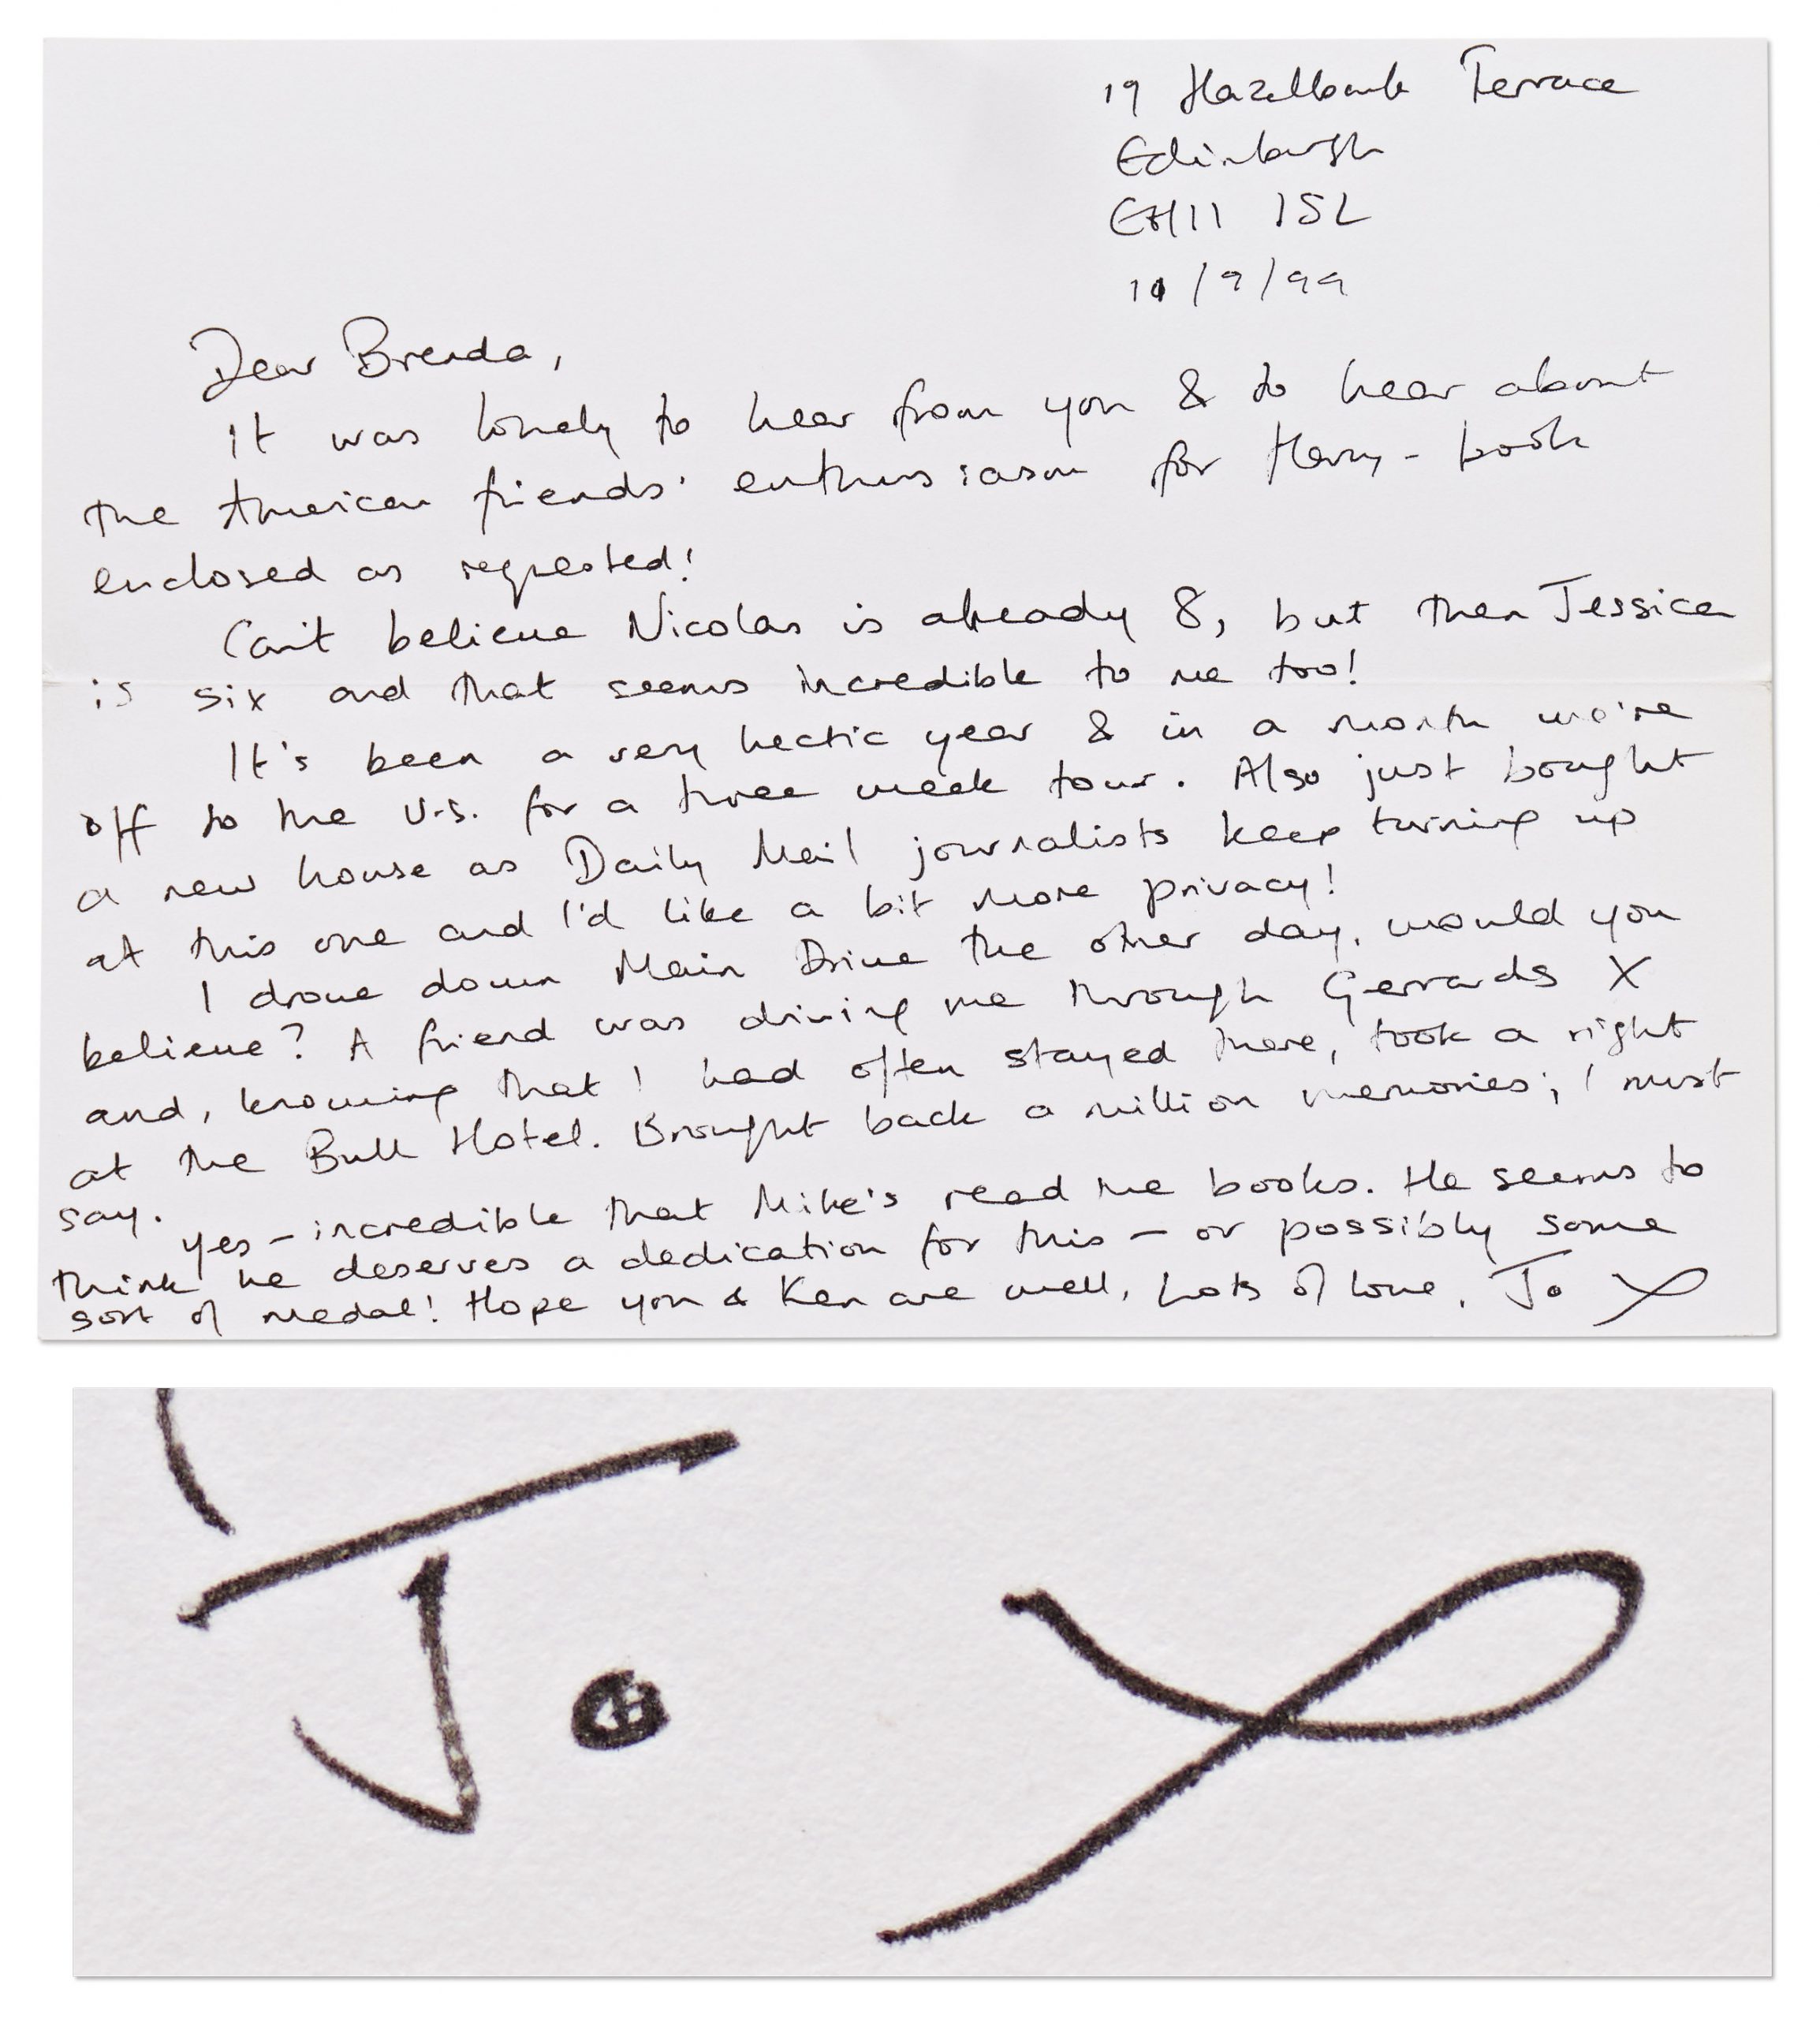 19 Hazelbank Terrace
Edinburgh
EH11 1SL
10/9/99
Dear Brenda,
It was lovely to hear from you & to hear about
the American friends' enthusiasm for Harry - book
enclosed as requested!
Can't believe Nicolas is already 8, but then Jessica
is six and that seems incredible to me too!
It's been a very hectic year & in a month we're
off to the U.S. for a three week tour. Also just bought
a new house as Daily Mail journalists keep turning up
at this one and I'd like a bit more privacy!
I drove down Main Drive the other day, would you
believe? A friend was driving me through Gerrards X
and, knowing that I had often stayed there, took a right
at the Bull Hotel. Brought back a million memories; I must
say.
Yes - incredible that Mike's read me books. He seems to
think he deserves a dedication for this - or possibly some
sort of medal! Hope you & Ken are well, Lots of love, Jo X
Jo X